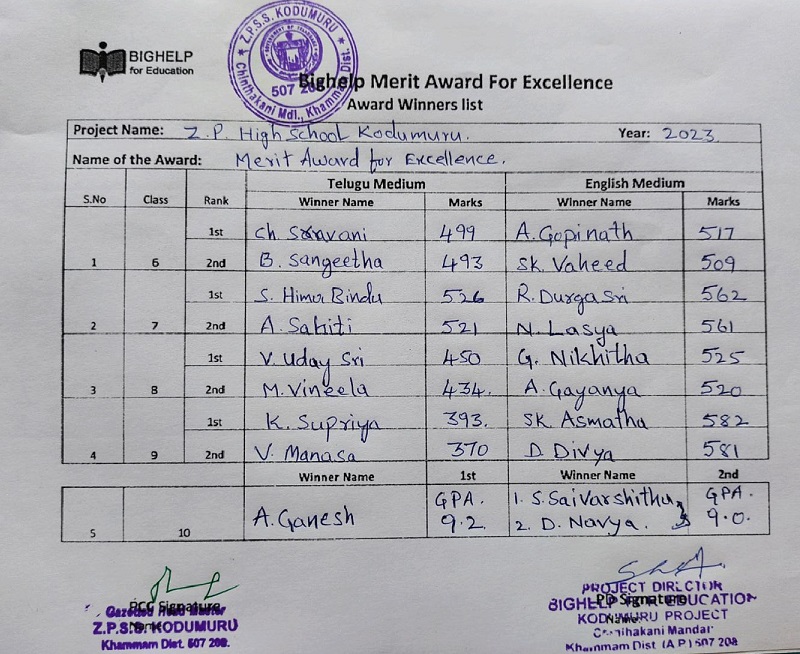 Z.P.S.S. KODUMURU
Chinthakani Mdl., Khammam Dist.
BIGHELP
for Education
Bighelp Merit Award For Excellence
Award Winners list
Project Name: Z.P. High School Kodumuru. Year: 2023
Name of the Award: Merit Award for Excellence.
Telugu Medium English Medium
S.No Class Rank Winner Name Marks Winner Name Marks
1st Ch Sravani 499 A. Gopinath 517
1 6 2nd B. Sangeetha 493 SK. Vaheed 509
1st S. Hima Bindu 526 R. Durga Sri 562
2 7 2nd A. Sahiti 521 N. Lasya 561
1st V. Uday Sri 450 G. Nikhitha 525
3 8 2nd M. Vineela 434. A. Gayanya 520
1st K. Supriya 393. SK Asmatha 582
4 9 2nd V. Manasa 370 D. Divya 581
Winner Name 1st Winner Name 2nd
5 10 A. Ganesh GPA. 9.2 1. S. Saivarshitha, GPA.
2. D. Navya. 9.0.
PCC Signature
Gazeded Head Master
Z.P.S.S. KODUMURU
Khammam Dist. 507 208.
PROJECT DIRECTOR
PD Signature
BIGHELP FOR EDUCATION
KODUMURU PROJECT
Name:
Chinthakani Mandal
Khammam Dist (A.P) 507 208